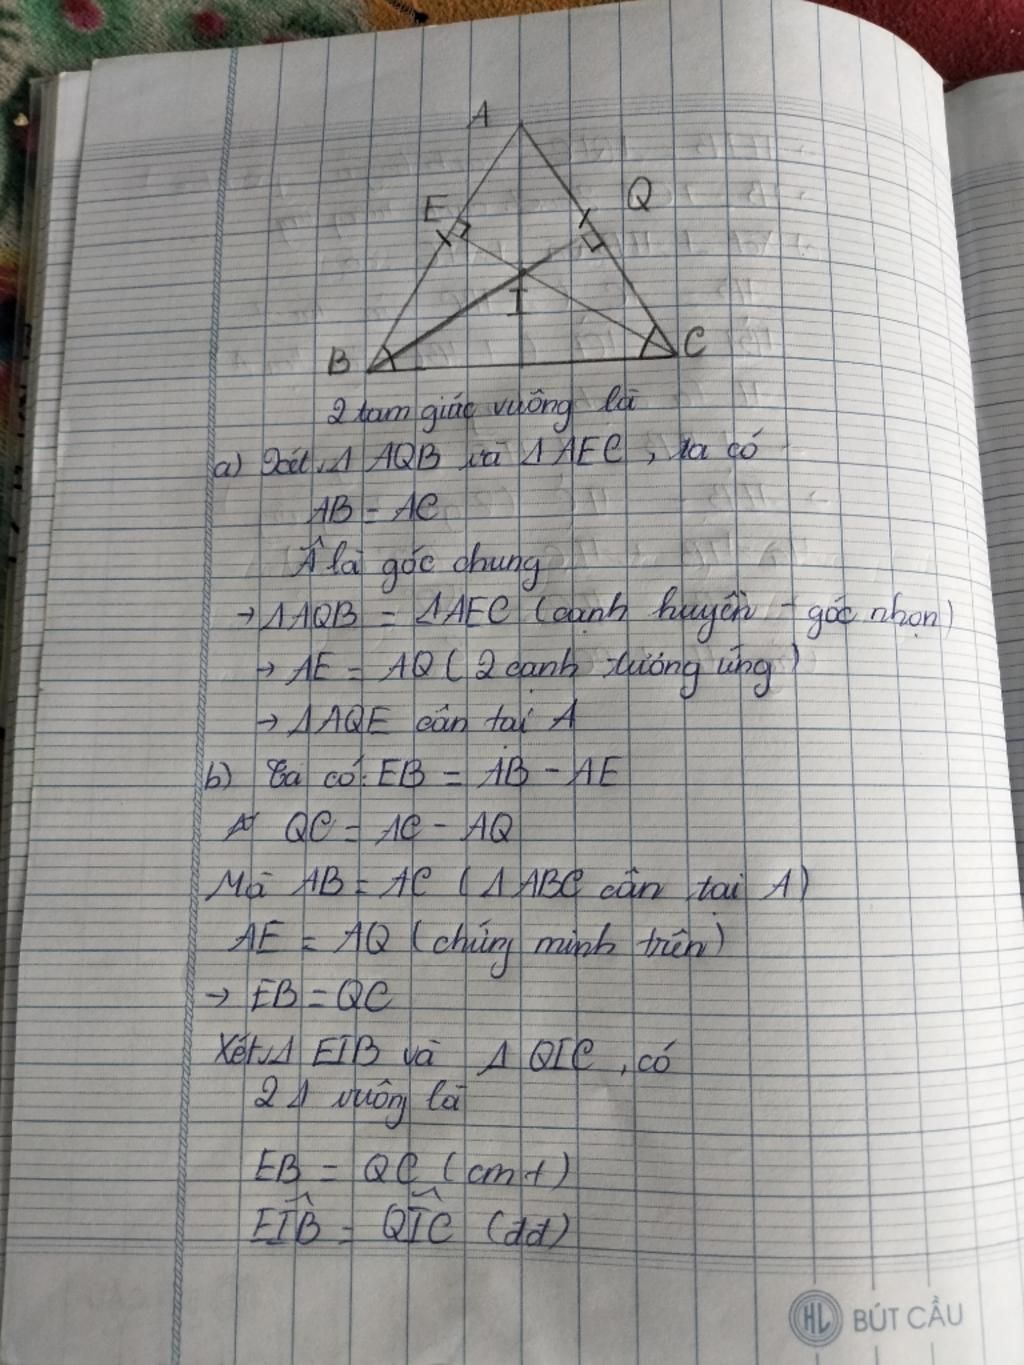 A
E
Q
I
B
C
2 tam giác vuông là
a) Xét Δ AQB và Δ AEC, ta có
AB = AC
Â là góc chung
→ ΔAQB = ΔAEC (cạnh huyền - góc nhọn)
→ AE = AQ (2 cạnh tương ứng)
→ ΔAQE cân tại A
b) Ta có: EB = AB - AE
QC = AC - AQ
Mà AB = AC (ΔABC cân tại A)
AE = AQ (chứng minh trên)
→ EB = QC
Xét Δ EIB và Δ QIC, có
2 Δ vuông là
EB = QC (cmt)
EÎB = QÎC (đđ)
HL BÚT CẦU